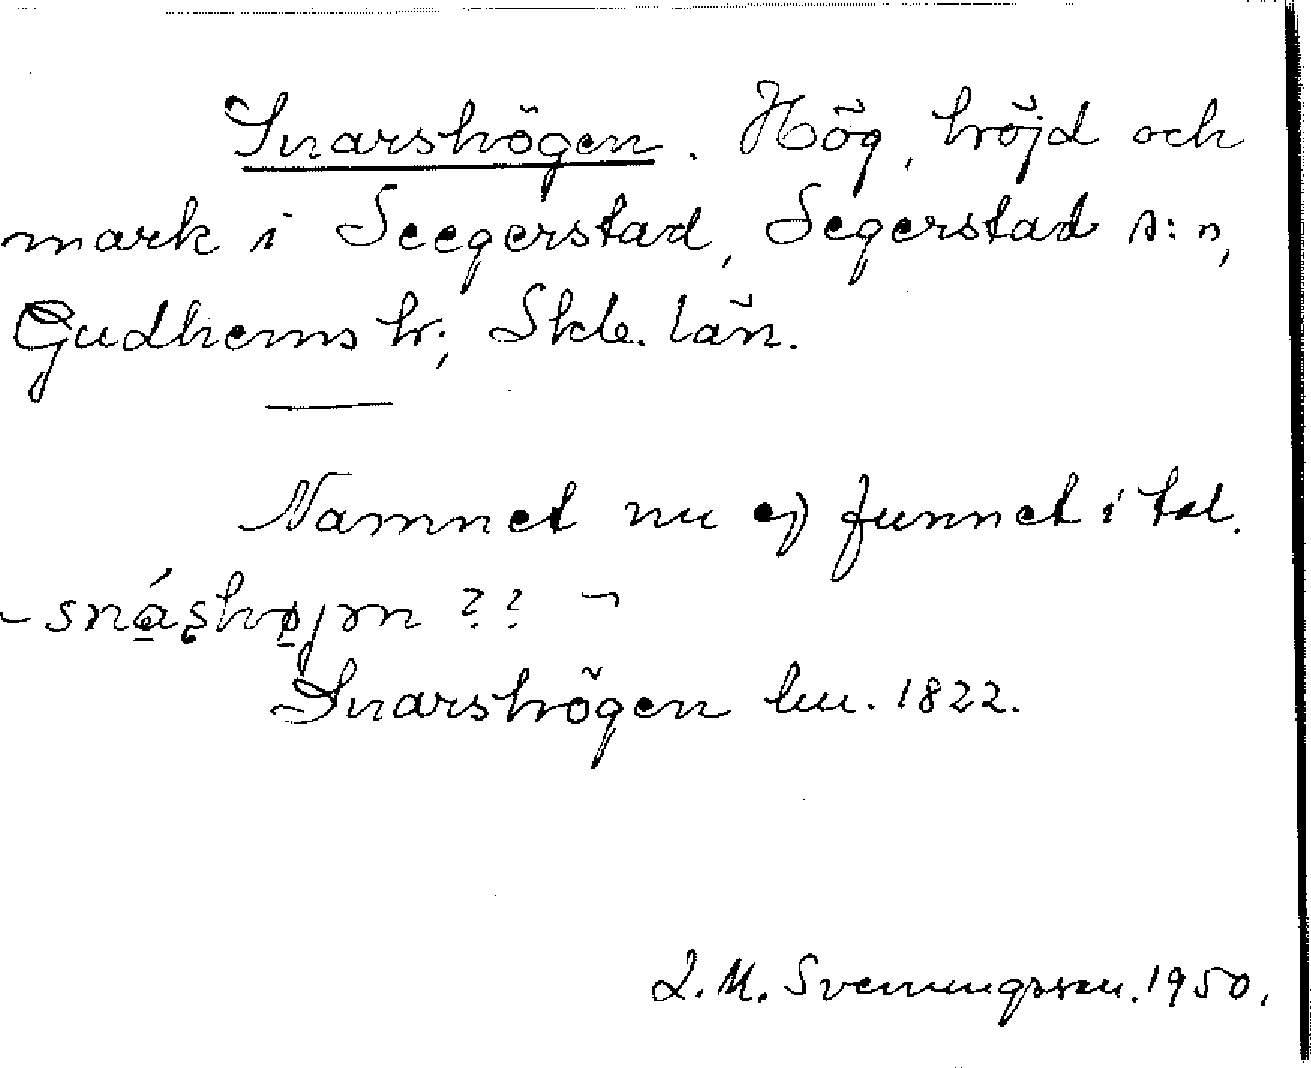 Snarshögen. Hög, höjd och
mark i Seegerstad, Segerstad s:n,
Gudhems hr, Skb. län.
Namnet nu ej funnet i tal.
Snarshögen lm. 1822.
L. M. Svenungsson. 1950.